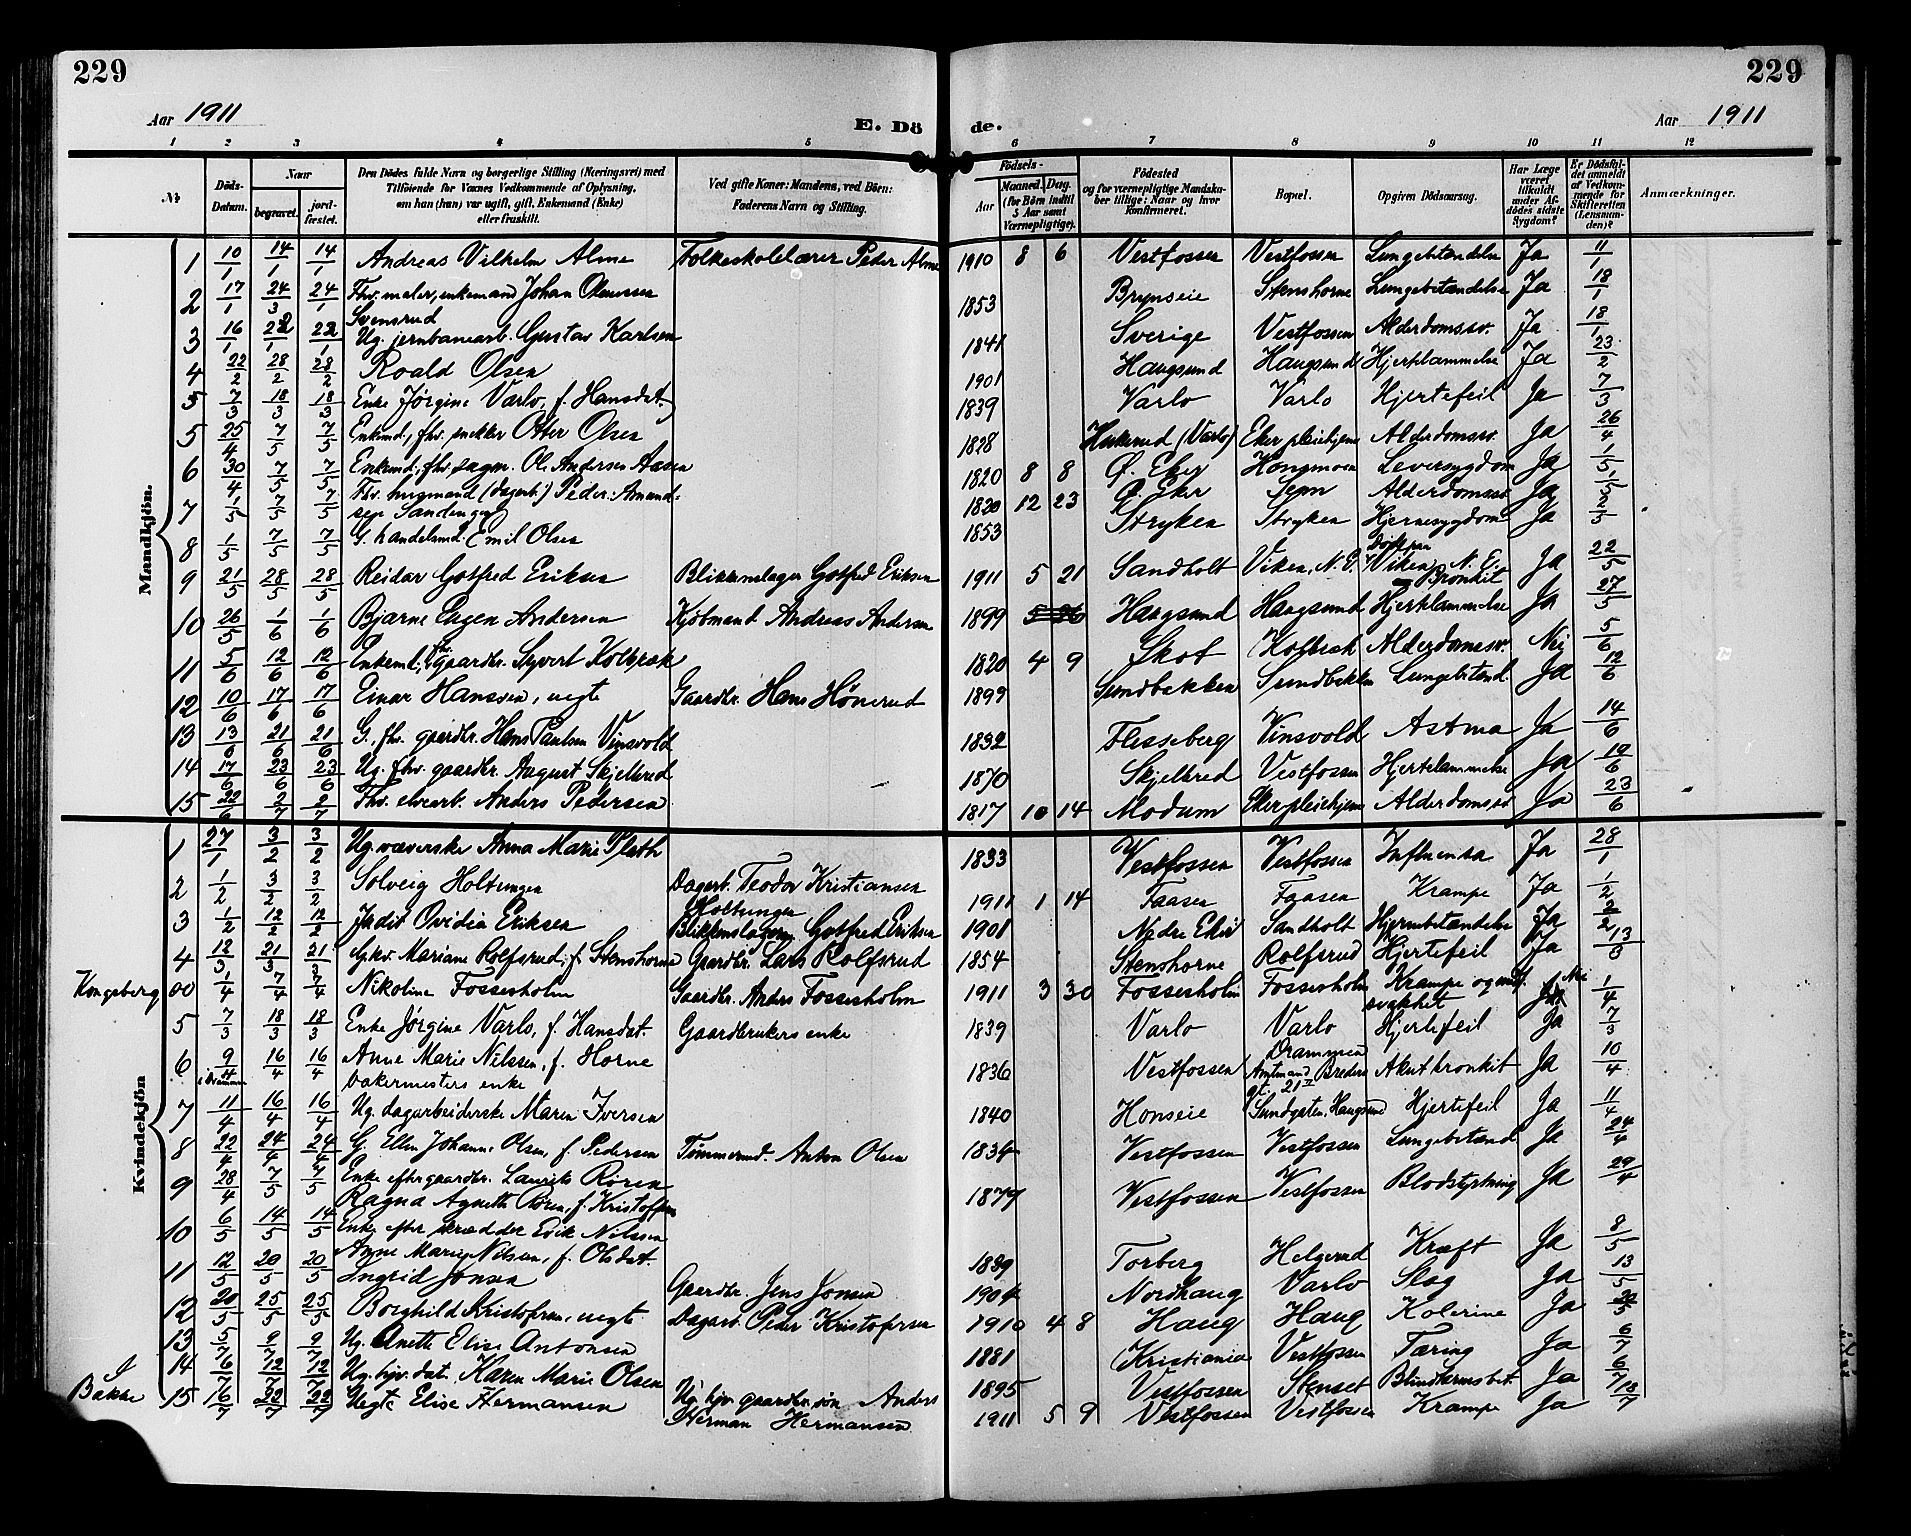 229
229
Aar 1911
E. Dö de.
Aar 1911
1 2 3 4 5 6 7 8 9 10 11 12
№
Döds-Datum.
Naar
begravet.
jord-fæstet.
Den Dödes fulde Navn og borgerlige Stilling (Næringsvei) med
Tilföiende for Voxnes Vedkommende af Oplysning,
om han (hun) var ugift, gift, Enkemand (Enke)
eller fraskilt.
Ved gifte Koner: Mandens, ved Börn:
Faderens Navn og Stilling.
Födsels-
Aar
Maaned. Dag.
(for Börn indtil
5 Aar samt
Værnepligtige).
Födested
og for værnepligtige Mandska-
ber tillige: Naar og hvor
konfirmeret.
Bopæl.
Opgiven Dödsaarsag.
Har Læge
været
tilkaldt
under Af-
dödes sidste
Sygdom?
Er Dödsfal-
det anmeldt
af Vedkom-
mende for
Skifteretten
(Lensman-
den)?
Anmærkninger.
Mandkjön.
1 10/1 14/1 14/1 Andreas Vilhelm Alme Folkeskolelærer Peder Alme 1910 8 6 Vestfossen Vestfossen Lungebetændelse Ja 11/1
2 17/1 24/3 24/1 Fhv. maler, enkemand Johan Olaussen 1853 Brynseie Stenshorne Lungebetændelse Ja 18/1
Svensrud
3 16/1 22/1 22/1 Ug. jernbanearb. Gustav Karlsen 1841 Sverige Vestfossen Alderdomssv. Ja 18/1
4 22/2 28/2 28/2 Roald Olsen 1901 Haugsund Haugsund Hjertelammelse Ja 23/2
5 7/3 18/3 18/3 Enke Jørgine Varlo, f. Hansdat. 1839 Varlo Varlo Hjertefeil Ja 7/3
5 25/4 7/5 7/5 Enkemd., fhv. snekker Otter Olsen 1828 (Varlo) Eker pleiehjem Alderdomssv. Ja 26/4
6 30/4 7/5 7/5 Enkemd., fhv. sagm. Ol. Andersen Aasen 1820 8 8 Ø. Eker Hongmoen Leversygdom Ja 1/5
7 1/5 7/5 7/5 Fhv. husmand (dagarb.) Peder Amund- 1820 12 23 Ø. Eker Sem Alderdomssv. Ja 1/5
sen Sandengen
8 1/5 7/5 7/5 G. handelsmd. Emil Olsen 1853 Stryken Stryken Hjernesygdom Ja 2/5
9 21/5 28/5 28/5 Reidar Gotfred Eriksen Blikkenslager Gotfred Eriksen 1911 5 21 Sandholt Viken, N.E. Viken, N.E. Bronkit Ja 22/5
10 26/5 1/6 1/6 Bjarne Eugen Andersen Kjøbmand Andreas Andersen 1899 5 26 Haugsund Haugsund Hjertelammelse Ja 27/5
11 5/6 12/6 12/6 Enkemd., fhv. gaardbr. Syvert Kolbræk 1820 4 9 Skot Kolbræk Alderdomssv. Nei 5/6
12 10/6 17/6 17/6 Einar Hanssen, uegte Gaardbr. Hans Hønerud 1899 Sundbakken Sundbakken Lungebetænd. Ja 12/6
13 13/6 21/6 21/6 G., fhv. gaardbr. Hans Paulsen Vinsvold 1832 Flesseberg Vinsvold Astma Ja 14/6
14 17/6 23/6 23/6 Ug. fhv. gaardbr. August Skjelbred 1870 Skjelbred Vestfossen Hjertelammelse Ja 19/6
15 22/6 2/7 2/7 Fhv. elvearb. Anders Pedersen 1817 10 14 Modum Eker pleiehjem Alderdomssv Ja 23/6
Kvindekjön
1 27/1 3/2 3/2 Ug. væverske Anna Marie Plath 1833 Vestfossen Vestfossen Influensa Ja 28/1
2 1/2 3/2 3/2 Solveig Holtungen Dagarb. Teodor Kristiansen 1911 1 14 Faasen Faasen Krampe Ja 1/2
Holtungen
3 1/2 12/2 12/2 Judit Ovidia Eriksen Blikkenslager Gotfred Eriksen 1901 Nedre Eker Sandholt Hjernebetændelse Ja 2/2
4 12/3 21/3 21/3 Gkv. Mariane Rolfsrud, f. Stenshorne Gaardbr. Lars Rolfsrud 1854 Stenshorne Rolfsrud Hjertefeil Ja 13/3
Kongsberg 00 1/4 7/4 7/4 Nikoline Fossesholm Gaardbr. Anders Fossesholm 1911 3 30 Fossesholm Fossesholm Krampe og medf. svakhet Nei 1/4
5 7/3 18/3 18/3 Enke Jørgine Varlo, f. Hansdat. Gaardbrukers enke 1839 Varlo Varlo Hjertefeil Ja 7/3
6 9/4 i Drammen 16/4 16/4 Anne Marie Nilssen, f. Horne 1836 Vestfossen Drammen Amtmand Bredes gt. 21 Akut bronkit Ja 10/4
bakermesters enke
7 11/4 16/4 16/4 Ug. dagarbeiderske Maren Iversen 1840 Honseie Sundgaten, Haugsund Hjertefeil Ja 11/4
8 22/4 24/4 24/4 G. Ellen Johanne Olsen, f. Pedersen Tømmermd. Anton Olsen 1834 Vestfossen Vestfossen Lungebetænd Ja 24/4
9 28/4 7/5 7/5 Enke efter gaardbr. Laurits Røren 1879 Vestfossen Vestfossen Blodstyrtning Ja 29/4
Ragna Agnethe Røren, f. Kristoffersen
10 6/5 14/5 14/5 Enke efter skrædder Erik Nilssen 1839 Torberg Helgerud Kræft Ja 8/5
Anne Marie Nilsen, f. Olsdat.
11 12/5 20/5 20/5 Ingrid Jonsen Gaardbr. Jens Jonsen 1904 Nordhaug Varlo Slag Ja 13/5
12 20/5 25/5 25/5 Borghild Kristofersen, uegte Dagarb. Peder Kristofersen 1910 4 8 Haug Haug Kolerine Ja 20/5
13 5/7 9/7 9/7 Ug. Anette Elise Antonsen 1881 Kristiania Vestfossen Tæring Ja 6/7
14 6/7 12/7 12/7 Ug. hjv. dat. Karen Marie Olsen 1895 Vestfossen Stenset Blindtarmsbet. Ja 6/7
I Bakke 15 16/7 22/7 22/7 Uegte Elise Hermansen Ug. hjv. gaardbr.søn Anders 1911 5 9 Vestfossen Vestfossen Krampe Ja 18/7
Herman Hermansen